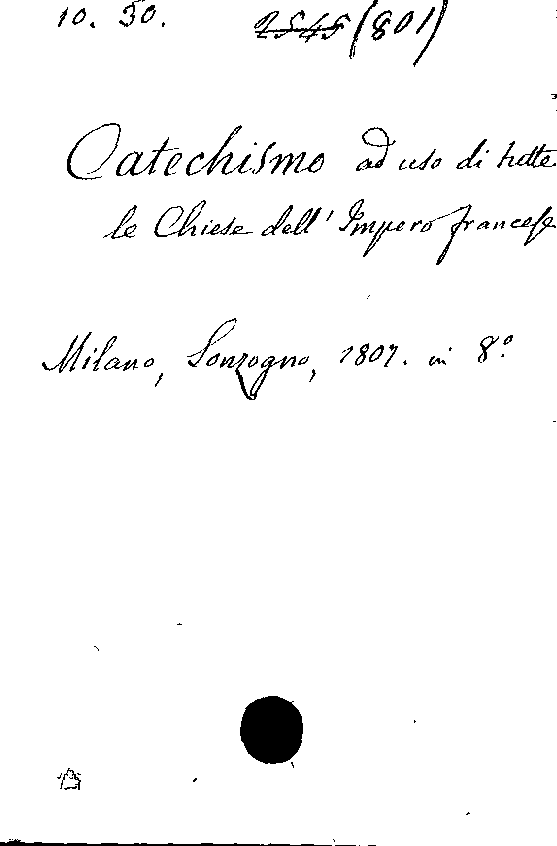 10. 30. 2545 (801)
Catechismo ad uso di tutte
le Chiese dell' Impero francese
Milano, Sonzogno, 1807. in 8.º